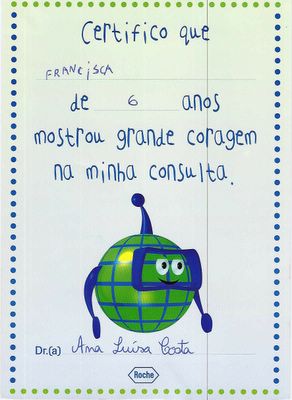 Certifico que
FRANCISCA
de 6 anos
mostrou grande coragem
na minha consulta.
Dr.(a) Ana Luísa Costa
Roche